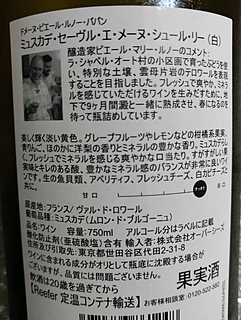 ドメーヌ・ピエール・ルノー・パパン
ミュスカデ・セーヴル・エ・メーヌ・シュール・リー (白)
醸造家ピエール・マリー・ルノーのコメント:
ラ・シャペル・オート村の小区画で育ったぶどうを使
い、特別な土壌、雲母片岩のテロワールを表現す
ることを目指しました。フレッシュで爽やか、ミネラ
ルを感じていただけるワインを生みだすために、地
下で9ヶ月間澱と一緒に熟成させ、春になるのを
待って瓶詰めしています。
美しく輝く淡い黄色。グレープフルーツやレモンなどの柑橘系果実、
青りんご、ほのかに洋梨の香りとミネラルの豊かな香り。ミュスカデら
しく、フレッシュでミネラルを感じる爽やかな口当たり。すがすがしい果
実味とキレのある酸、豊かなミネラル感のバランスが非常に良いワイ
ンです。生の魚貝類、アペリティフ、フレッシュチーズ、白カビチーズと
共に。
甘口 辛口
原産国:フランス/ ヴァル・ド・ロワール
葡萄品種:ミュスカデ(ムロン・ド・ブルゴーニュ)
品名:ワイン 容量:750ml アルコール分はラベルに記載
酸化防止剤(亜硫酸塩)含有 輸入者:株式会社オーバーシーズ
住所及び引取先:東京都世田谷区代田2-31-8
ワインに含まれる成分がオリとして瓶底に沈殿する場合が
ございますが、品質には問題ございません。
飲酒は20歳を過ぎてから
【Reefer 定温コンテナ輸送】
果実酒
お客様相談室:0120-522-582